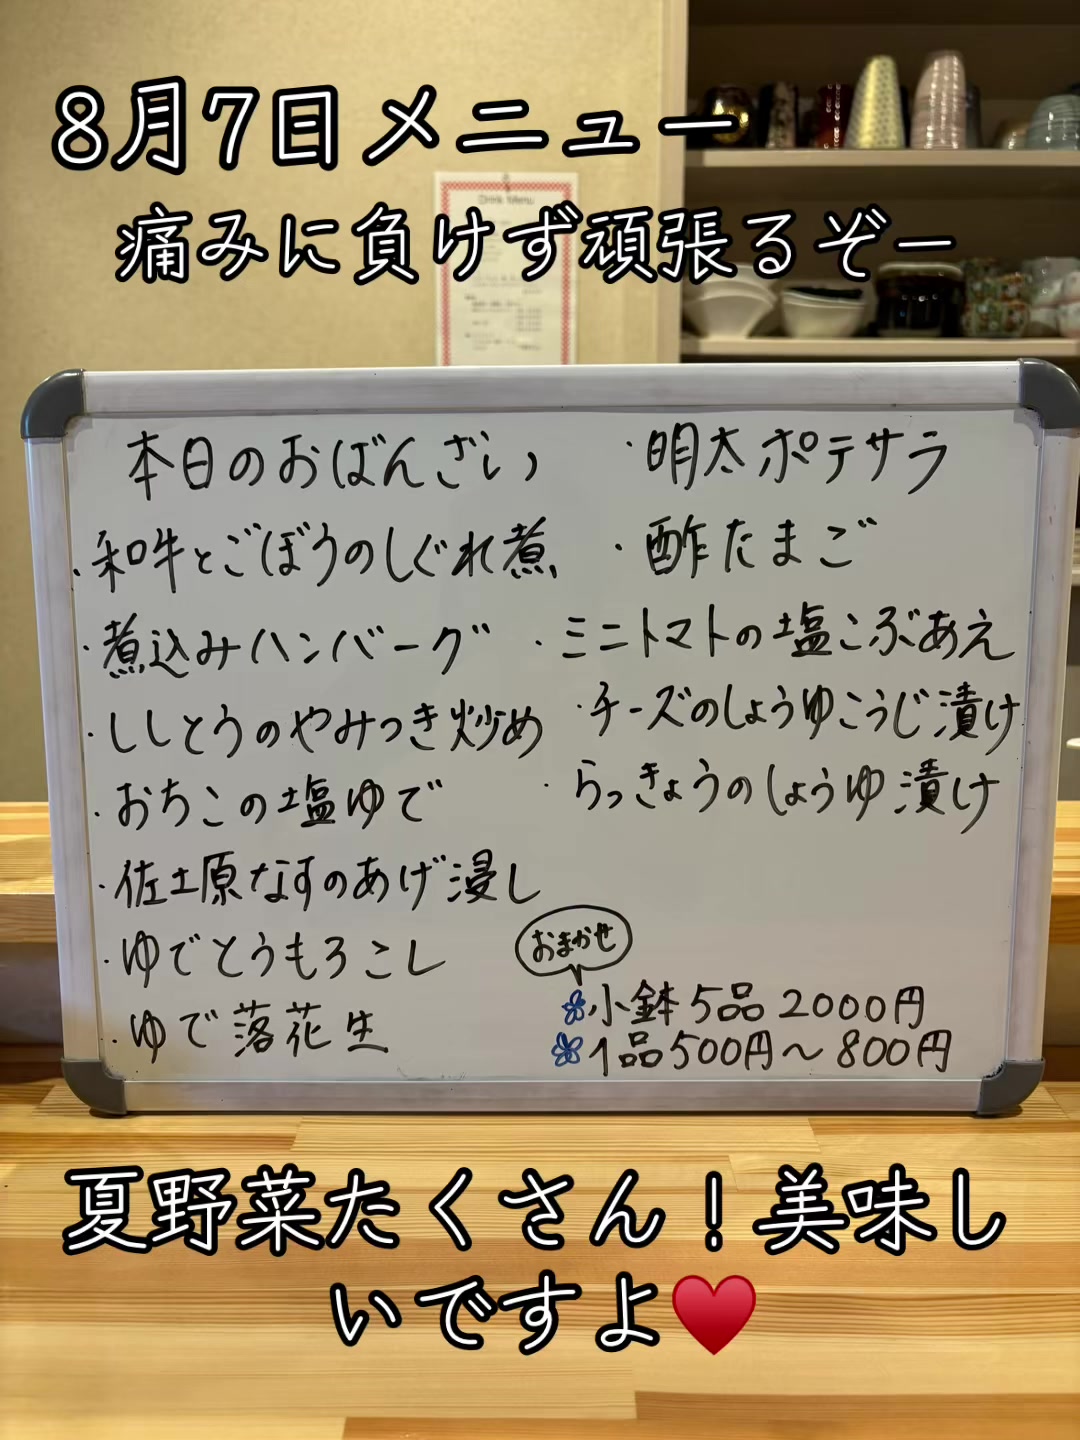 8月7日メニュー
痛みに負けず頑張るぞー
Drink Menu
本日のおばんざい
・和牛とごぼうのしぐれ煮
・煮込みハンバーグ
・ししとうのやみつき炒め
・おちこの塩ゆで
・佐土原なすのあげ浸し
・ゆでとうもろこし
・ゆで落花生
・明太ポテサラ
・酢たまご
・ミニトマトの塩こぶあえ
・チーズのしょうゆこうじ漬け
・らっきょうのしょうゆ漬け
おまかせ
小鉢5品2000円
1品500円〜800円
夏野菜たくさん!美味し
いですよ♥